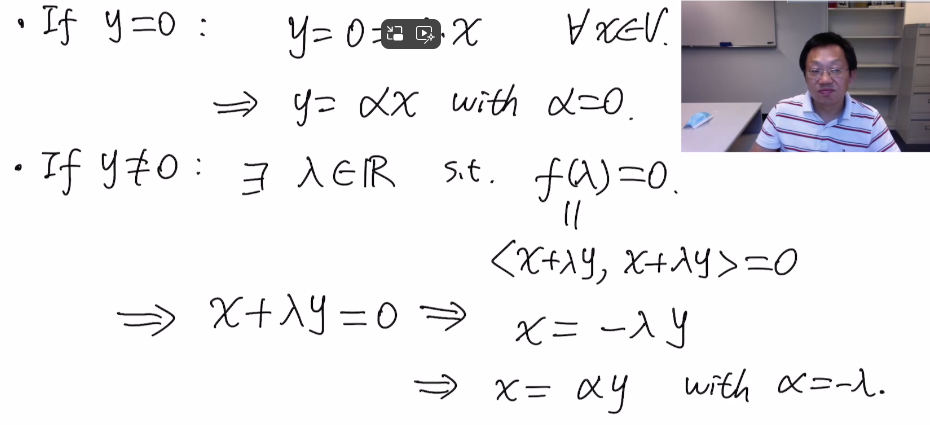 • If y=0 : y= 0= · x ∀ x∈V.
⇒ y= αx with α=0.
• If y≠0 : ∃ λ∈ℝ s.t. f(λ)=0.
||
<x+λy, x+λy>=0
⇒ x+λy=0 ⇒ x= -λy
⇒ x= αy with α=-λ.